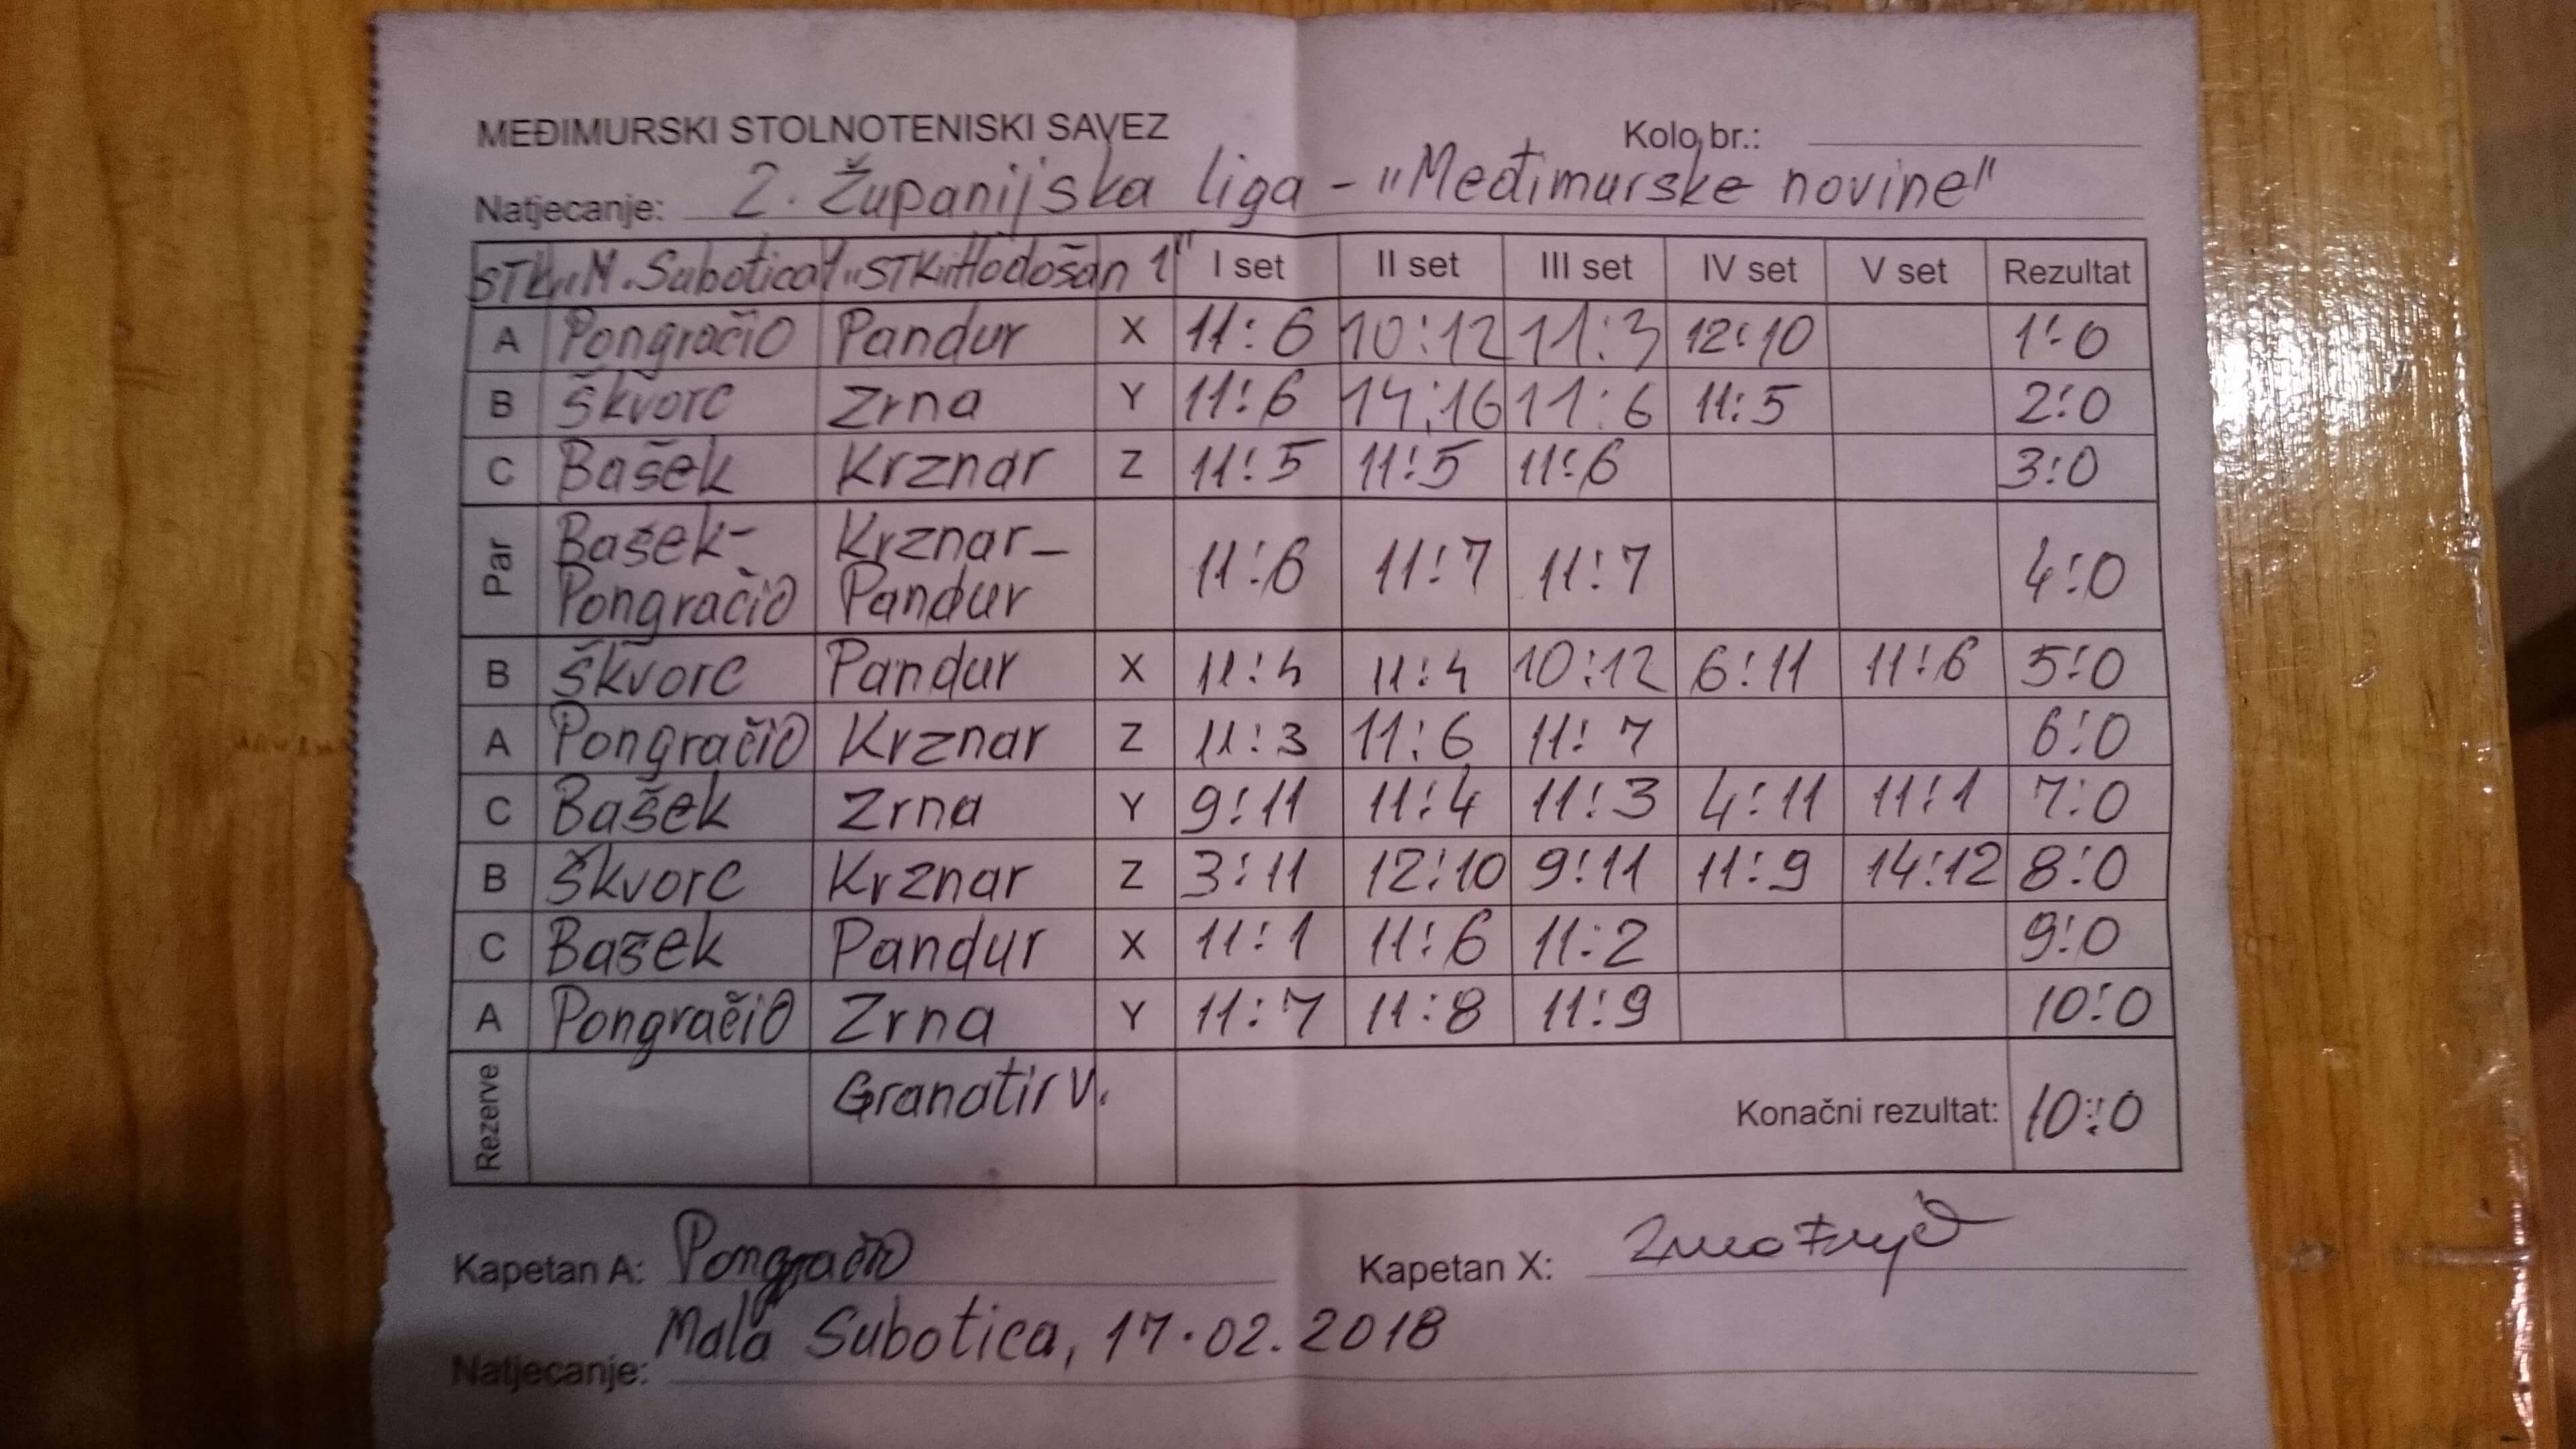 MEĐIMURSKI STOLNOTENISKI SAVEZ Kolo br.:
Natjecanje: 2. Županijska liga - "Međimurske novine"
STK "M. Subotica" "STK Hodošan 1" I set II set III set IV set V set Rezultat
A Pongračić Pandur X 11:6 10:12 11:3 12:10 1:0
B Škvorc Zrna Y 11:6 14:16 11:6 11:5 2:0
C Bašek Krznar Z 11:5 11:5 11:6 3:0
Par Bašek- Pongračić Krznar- Pandur 11:6 11:7 11:7 4:0
B Škvorc Pandur X 11:4 11:4 10:12 6:11 11:6 5:0
A Pongračić Krznar Z 11:3 11:6 11:7 6:0
C Bašek Zrna Y 9:11 11:4 11:3 4:11 11:1 7:0
B Škvorc Krznar Z 3:11 12:10 9:11 11:9 14:12 8:0
C Bašek Pandur X 11:1 11:6 11:2 9:0
A Pongračić Zrna Y 11:7 11:8 11:9 10:0
Rezerve Granatir V. Konačni rezultat: 10:0
Kapetan A: Pongračić Kapetan X:
Natjecanje: Mala Subotica, 17.02.2018